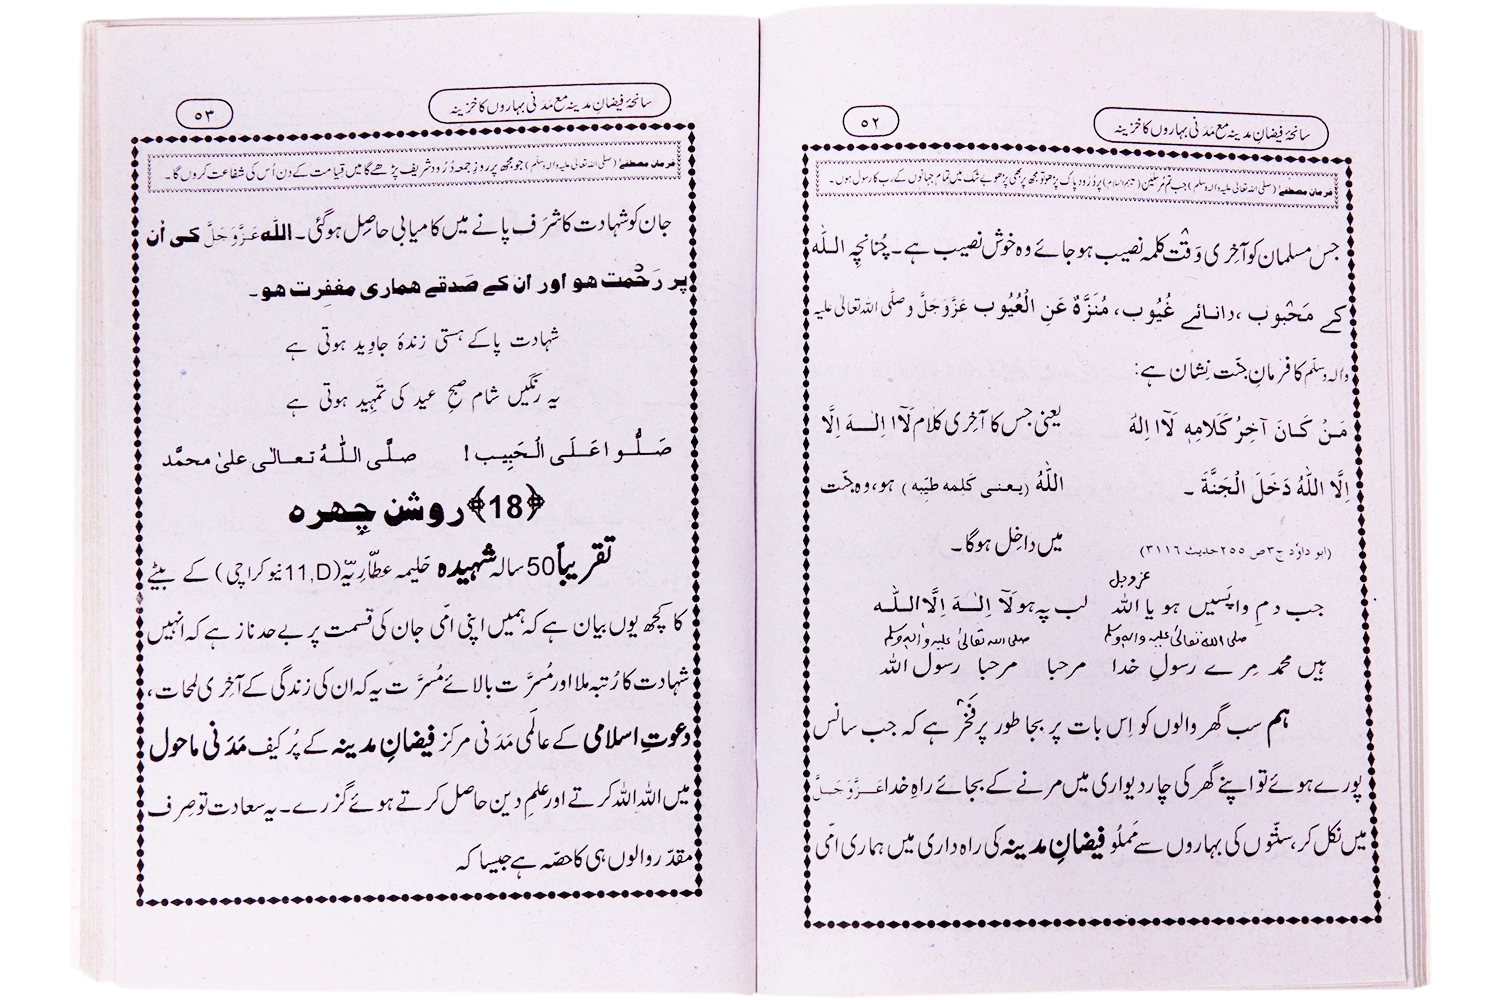 سانحۂ فیضانِ مدینہ مع مَدَنی بہاروں کا خزینہ
٥٢
فرمانِ مصطفےٰ (صلی اللہ تعالیٰ علیہ والہ وسلم) جب تم مُرسلین (علیہم السلام) پر دُرُود پاک پڑھو تو مجھ پر بھی پڑھو بے شک میں تمام جہانوں کے رب کا رسول ہوں۔
جس مسلمان کو آخِری وَقْت کلمہ نصیب ہو جائے وہ خوش نصیب ہے۔ چُنانچِہ اللّٰہ
کے مَحْبوب ، دانائے غُیُوب ، مُنَزَّہٌ عَنِ الْعُیُوب عَزَّوَجَلَّ و صلَّی اللہ تعالیٰ علیہ
والہ وسلّم کا فرمانِ جنّت نِشان ہے:
مَنْ کَانَ آخِرُ کَلَامِہٖ لَآ اِلٰہَ
یعنی جس کا آخِری کلام لَآ اِلٰـہَ اِلَّا
اِلَّا اللّٰہُ دَخَلَ الْجَنَّۃَ ۔
اللّٰہُ (یعنی کَلِمہ طیِّبہ) ہو، وہ جنّت
(ابو داوٗد ج۳ ص ۲۵۵ حدیث ۳۱۱۶)
میں داخِل ہوگا۔
عزوجل
جب دمِ واپَسیں ہو یا اللّٰہ لب پہ ہو لَآ اِلٰـہَ اِلَّا اللّٰـہ
صلی اللہ تعالیٰ علیہ واٰلہٖ وسلم صلی اللہ تعالیٰ علیہ واٰلہٖ وسلم
ہیں محمد مِرے رسولِ خدا مرحبا مرحبا رسول اللہ
ہم سب گھر والوں کو اِس بات پر بجا طور پر فَخْر ہے کہ جب سانس
پورے ہوئے تو اپنے گھر کی چار دیواری میں مرنے کے بجائے راہِ خدا عَـزَّوَجَلَّ
میں نکل کر، سنّتوں کی بہاروں سے مَملُو فیضانِ مدینہ کی راہ داری میں ہماری امّی
سانحۂ فیضانِ مدینہ مع مَدَنی بہاروں کا خزینہ
٥٣
فرمانِ مصطفےٰ (صلی اللہ تعالیٰ علیہ والہ وسلم) جو مجھ پر روزِ جمعہ دُرُود شریف پڑھے گا میں قیامت کے دن اُس کی شفاعت کروں گا۔
جان کو شہادت کا شَرَف پانے میں کامیابی حاصِل ہوگئی۔ اللہ عَزَّوَجَلَّ کی اُن
پر رَحْمت ھو اور ان کے صَدقے ھماری مغفِرت ھو۔
شہادت پا کے ہستی زندۂ جاوِید ہوتی ہے
یہ رَنگیں شام صبحِ عید کی تَمہِید ہوتی ہے
صَـلُّـو اعَلَی الْحَبِیب ! صلَّی اللّٰہُ تعالٰی علیٰ محمَّد
﴿18﴾ روشن چِھرہ
تقریباً 50 سالہ شہیدہ حَلیمہ عطّارِیّہ (11,D نیو کراچی) کے بیٹے
کا کچھ یوں بیان ہے کہ ہمیں اپنی امّی جان کی قسمت پر بے حد ناز ہے کہ انہیں
شہادت کا رُتبہ ملا اور مُسرَّت بالائے مُسرَّت یہ کہ ان کی زندگی کے آخِری لمحات ،
دعوتِ اسلامی کے عالَمی مَدَنی مرکز فیضانِ مدینہ کے پُر کیف مَدَنی ماحول
میں اللہ اللہ کرتے اور علمِ دین حاصل کرتے ہوئے گزرے۔ یہ سعادت تو صِرف
مقدّر والوں ہی کا حصّہ ہے جیسا کہ